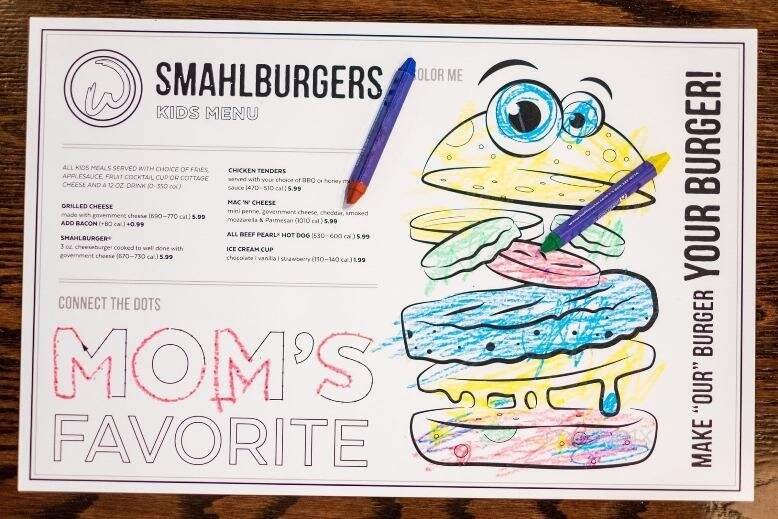 SMAHLBURGERS
KIDS MENU
ALL KIDS MEALS SERVED WITH CHOICE OF FRIES,
APPLESAUCE, FRUIT COCKTAIL CUP OR COTTAGE
CHEESE AND A 12 OZ. DRINK (0-350 cal.)
GRILLED CHEESE
made with government cheese (690-770 cal.) 5.99
ADD BACON (+80 cal.) +0.99
SMAHLBURGER®
3 oz. cheeseburger cooked to well done with
government cheese (670-730 cal.) 5.99
CHICKEN TENDERS
served with your choice of BBQ or honey
sauce (470-510 cal.) 5.99
MAC 'N' CHEESE
mini penne, government cheese, cheddar, smoked
mozzarella & Parmesan (1010 cal.) 5.99
ALL BEEF PEARL® HOT DOG (530-600 cal.) 5.99
ICE CREAM CUP
chocolate | vanilla | strawberry (130-140 cal.) 1.99
CONNECT THE DOTS
MOM'S
FAVORITE
OLOR ME
MAKE "OUR" BURGER YOUR BURGER!